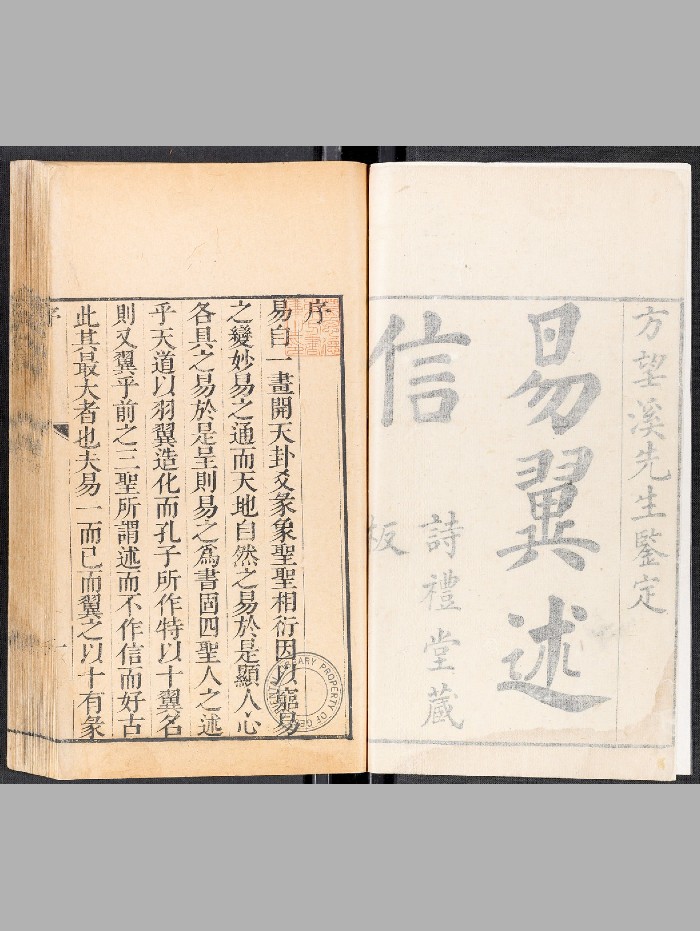 方望溪先生鑒定
易翼述
信
詩禮堂藏
板
序
易自一畫開天卦爻彖象聖聖相衍因以窮易
之變妙易之通而天地自然之易於是顯人心
各具之易於是呈則易之為書固四聖人之述
乎天道以羽翼造化而孔子所作特以十翼名
則又翼乎前之三聖所謂述而不作信而好古
此其最大者也夫易一而已而翼之以十有彖
序
一
PROPERTY OF